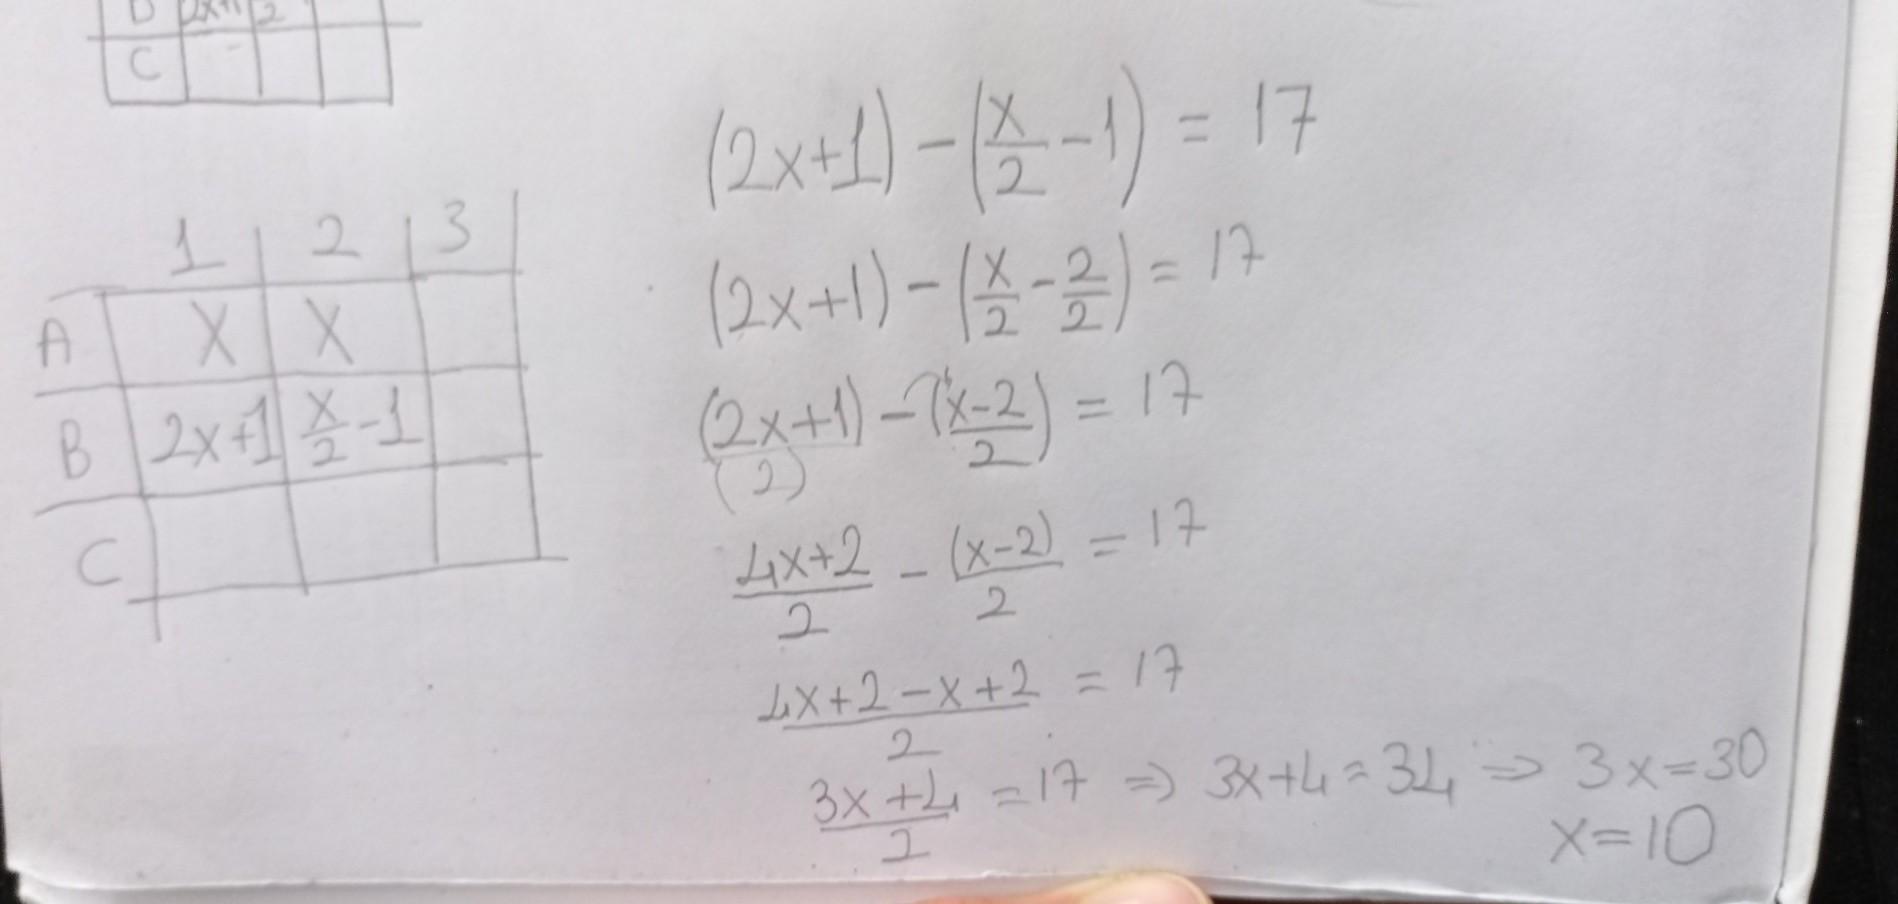 C
1 2 3
A X X
B 2x+1 x/2-1
C
(2x+1)-(x/2-1) = 17
(2x+1)-(x/2-2/2) = 17
(2x+1)-(x-2/2) = 17
(2)
4x+2/2 - (x-2)/2 = 17
4x+2-x+2/2 = 17
3x+4/2 = 17 ⇒ 3x+4=34 ⇒ 3x=30
x=10